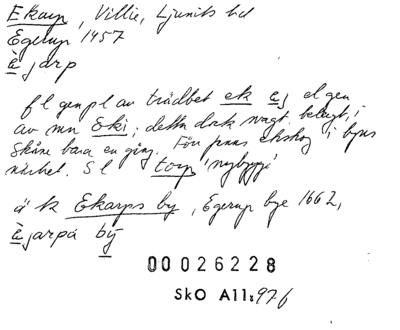 Ekarp, Villie, Ljunits hd
Egerup 1457
èjarp
fl gen pl av trädbet ek ej el gen
av mn Eki; detta dock svagt belagt, i
Skåne bara en gång. Förr fanns ekskog i byns
närhet. S l torp 'nybygge'
ä k Ekarps by, Egerup bye 1662,
èjarpa by
00026228
SkO A11:976